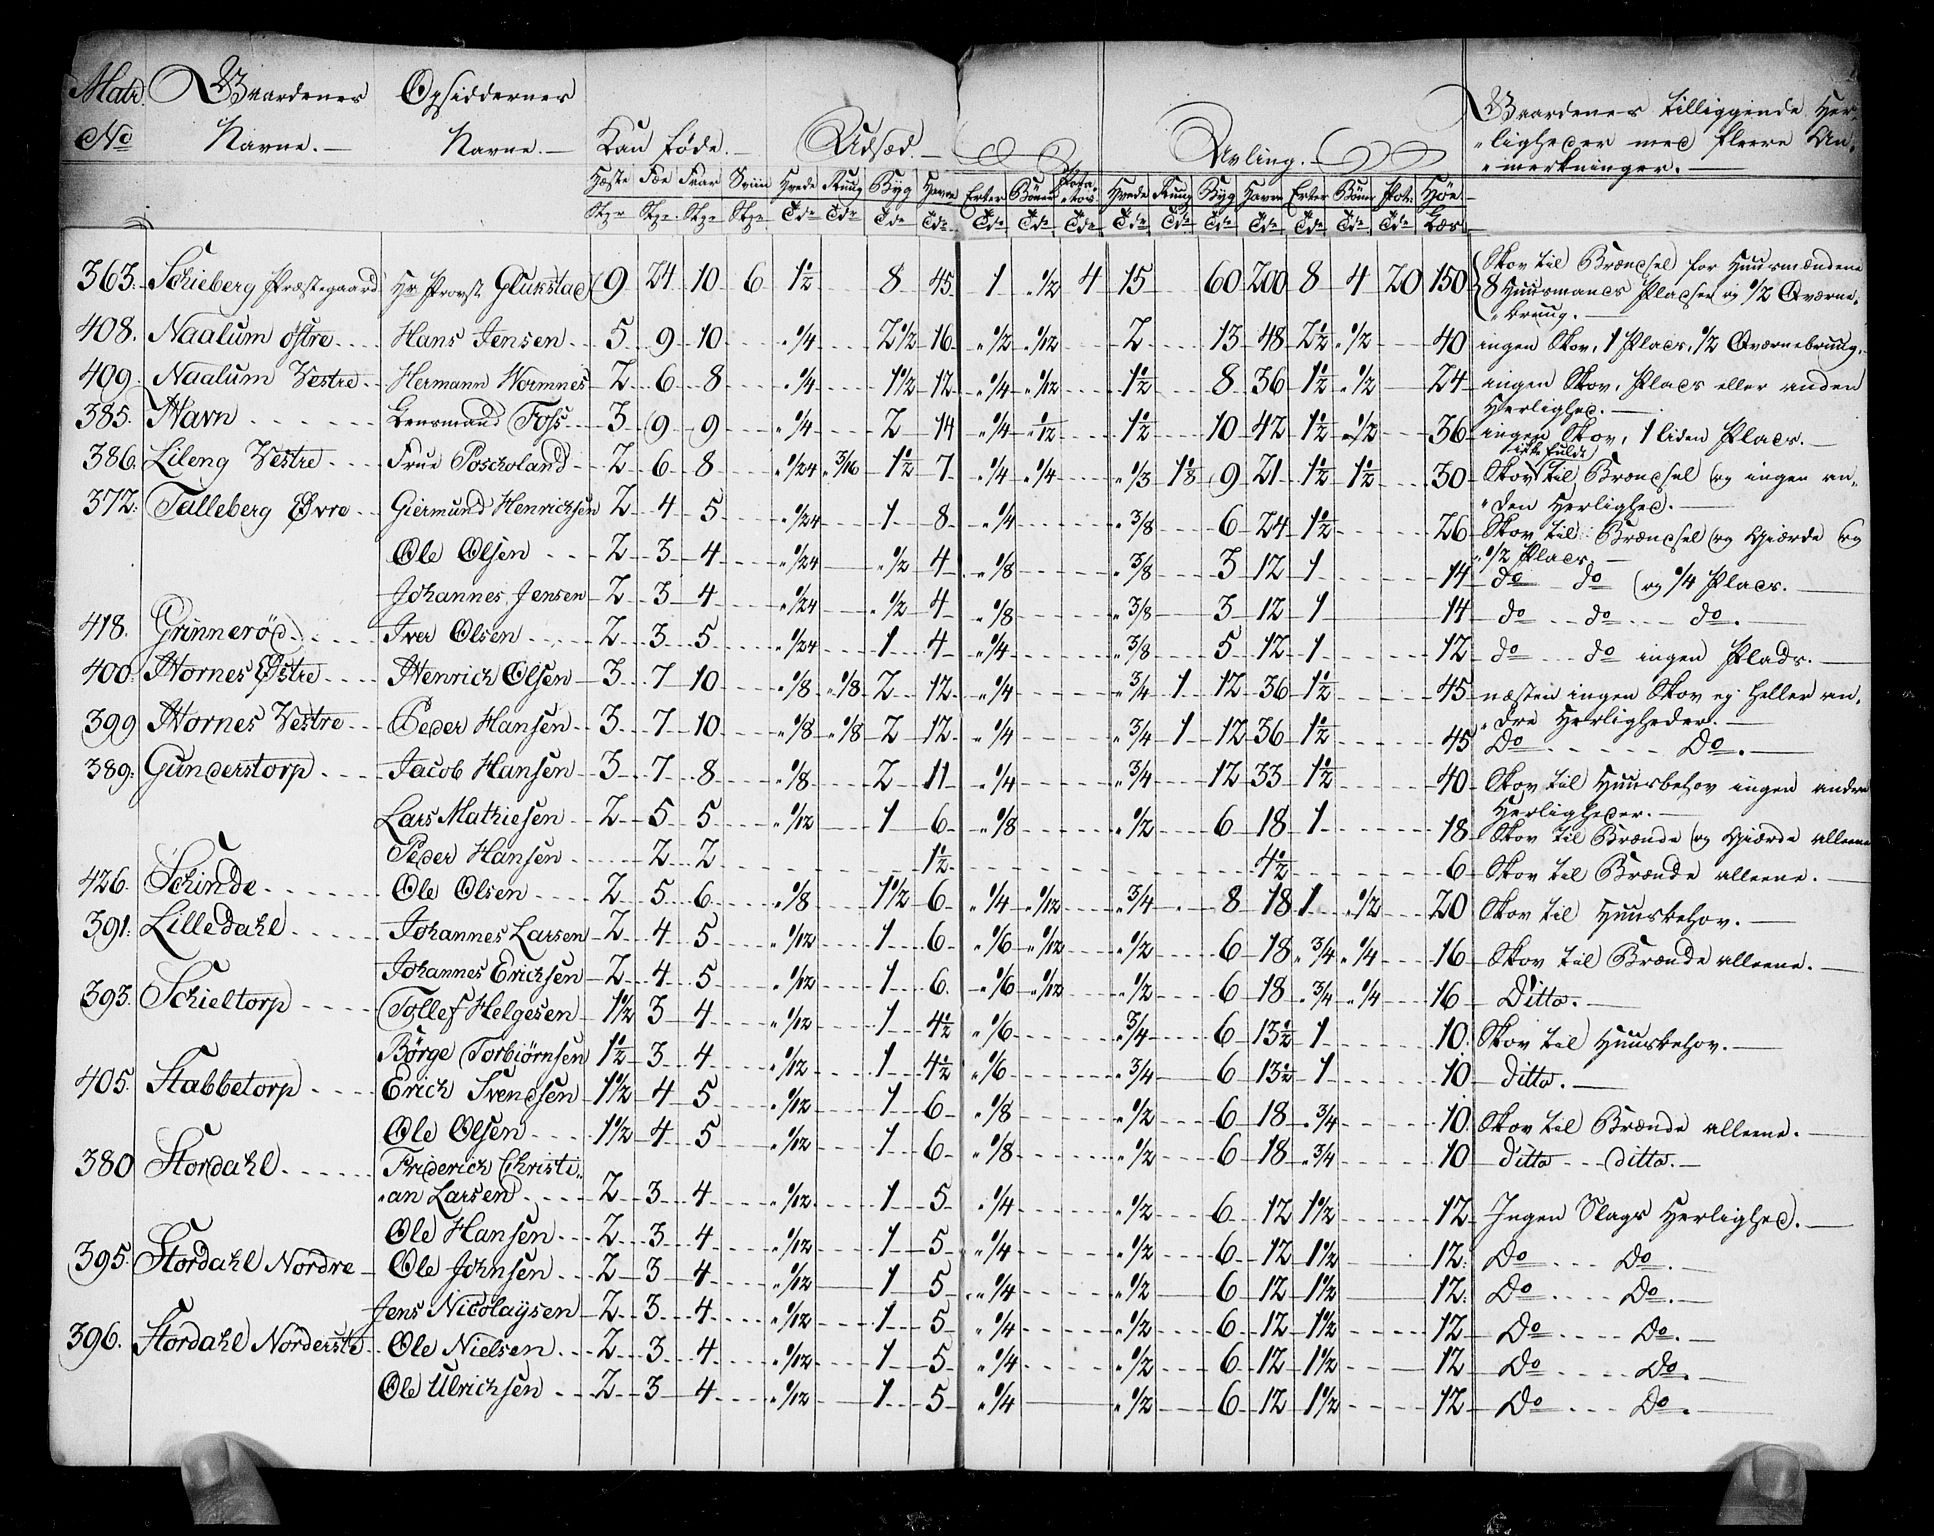 Matr. No | Gaardenes Navne.— | Opsiddernes Navne.— | Kan føde.— | Udsæd.— | Avling.— | Gaardenes tilliggende Her-
„ligheder med fleere An-
„merkninger.—
Hæste Fæe Faar Sviin | Hvede Rug Byg Havre Erter Bönner Pota-„tos | Hvede Rug Byg Havre Erter Bönn Pot: Høe
Styr Styr Styr Styr | Tdr Tdr Tdr Tdr Tdr Tdr Tdr | Tdr Tdr Tdr Tdr Tdr Tdr Tdr Læs
363. Schieberg Præstegaard | Hr Provst Glukstad | 9 24 10 6 | 1½ 8 45 1 „½ 4 | 15 60 200 8 4 20 150 | Skov til Brændsel for Huusmændene
8 Huusmands Pladser og ½ Qværne-
„bruug.—
408. Naalum østre | Hans Jensen | 5 9 10 | „¼ 2½ 16 „½ „1/12 | 2 13 48 2½ „½ 40 | ingen Skov, 1 Plads, ½ Qværnebruug.
409. Naalum Vestre | Hermann Wormnes | 2 6 8 | „¼ 1½ 12 „¼ „1/12 | 1½ 8 36 1½ „½ 24 | ingen Skov, Plads eller anden
Herlighed.—
385. Navn | Lensmand Foss | 3 9 9 | „¼ 2 14 „¼ „1/12 | 1½ 10 42 1½ „½ 36 | ingen Skov, 1 liden Plads.—
386. Lileng Vestre | Frue Poscholand | 2 6 8 | „1/24 „3/16 1½ 7 „¼ „¼ | „⅓ 1⅛ 9 21 1½ 1½ 30 | Skov til Brændsel og ingen an-
„den Herlighed.—
372. Talleberg Øvre | Giermund Henrichsen | 2 4 5 | „1/24 1 8 „¼ | „⅜ 6 24 1½ 26 | Skov til Brændsel og Giærde og
„½ Plads.
Ole Olsen | 2 3 4 | „1/24 „½ 4 „⅛ | „⅜ 3 12 1 14 | do do og ¼ Plads.
Johannes Jensen | 2 3 4 | „1/24 „½ 4 „⅛ | „⅜ 3 12 1 14 | do do do.—
418. Grinnerød | Iver Olsen | 2 3 5 | „1/24 1 4 „¼ | „⅜ 5 12 1 12 | do do ingen Plads.—
400. Hornes Østre | Henrich Olsen | 3 7 10 | „⅛ „⅛ 2 12 „¼ | „¾ 1 12 36 1½ 45 | næsten ingen Skov ej heller an-
„dre Herligheder.—
399 Hornes Vestre | Peder Hansen | 3 7 10 | „⅛ „⅛ 2 12 „¼ | „¾ 1 12 36 1½ 45 | Do Do.—
389. Gunderstorp | Jacob Hansen | 3 7 8 | „⅛ 2 11 „¼ | „¾ 12 33 1½ 40 | Skov til Huusbehov ingen andre
Herligheder.—
Lars Mathiesen | 2 5 5 | „1/12 1 6 „⅛ | „½ 6 18 1 18 | Skov til Brænde og Giærde alleene
Peder Hansen | 2 2 | 1½ | 4½ 6 | Skov til Brænde alleene.—
426. Schinde | Ole Olsen | 2 5 6 | „⅛ 1½ 6 „¼ „1/12 | „¾ 8 18 1 „½ 20 | Skov til Huusbehov.—
391. Lilledahl | Johannes Larsen | 2 4 5 | „1/12 1 6 „⅙ „1/12 | „½ 6 18 „¾ „¼ 16 | Skov til Brænde alleene.—
Johannes Erichsen | 2 4 5 | „1/12 1 6 „⅙ „1/12 | „½ 6 18 „¾ „¼ 16 | Ditto.—
393. Schieltorp | Tollef Helgesen | 1½ 3 4 | „1/12 1 4½ „⅙ | „¾ 6 13½ 1 10 | Skov til Huusbehov.—
Börge Torbiörnsen | 1½ 3 4 | „1/12 1 4½ „⅙ | „¾ 6 13½ 1 10 | ditto.—
405. Stabbetorp | Erich Svendsen | 1½ 4 5 | „1/12 1 6 „⅛ | „½ 6 18 „¾ 10 | Skov til Brænde alleene.—
Ole Olsen | 1½ 4 5 | „1/12 1 6 „⅛ | „½ 6 18 „¾ 10 | ditto ditto.—
380 Stordahl | Friderich Christi-
„an Larsen | 2 3 4 | „1/12 1 5 „¼ | „½ 6 12 1½ 12 | Ingen Slags Herlighed.—
Ole Hansen | 2 3 4 | „1/12 1 5 „¼ | „½ 6 12 1½ 12 | Do Do.—
395. Stordahl Nordre | Ole Johnsen | 2 3 4 | „1/12 1 5 „¼ | „½ 6 12 1½ 12 | Do Do.—
Jens Nicolaÿsen | 2 3 4 | „1/12 1 5 „¼ | „½ 6 12 1½ 12 | Do Do.—
396. Stordahl Norderste | Ole Nielsen | 2 3 4 | „1/12 1 5 „¼ | „½ 6 12 1½ 12 | Do Do.
Ole Ulrichsen | 2 3 4 | „1/12 1 5 „¼ | „½ 6 12 1½ 12 | Do Do.